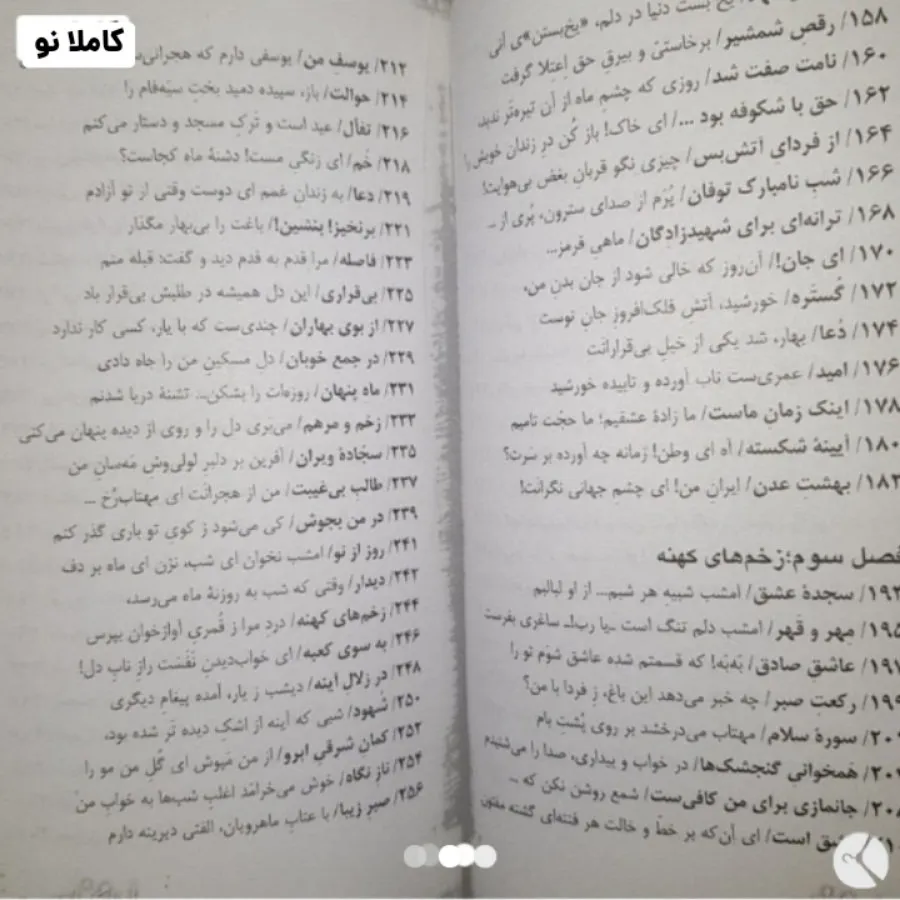 کاملا نو
یخ بست دنیا در دلم، «یخ‌بستن»ی آنی
۱۵۸/ رقصِ شمشیر/ برخاستی و بیرقِ حق اِعتِلا گرفت
۱۶۰/ نامت صفت شد/ روزی که چشمِ ماه از آن تیره‌تر ندید،
۱۶۲/ حق با شکوفه بود .../ ای خاک! باز کُن درِ زندان خویش را
۱۶۴/ از فردایِ آتش‌بس/ چیزی نگو قربانِ بغض بی‌هوایت!
۱۶۶/ شبِ نامبارک توفان/ پُرَم از صدای سترون، پُری از ...
۱۶۸/ ترانه‌ای برای شهیدزادگان/ ماهی قرمز...
۱۷۰/ ای جان!/ آن‌روز که خالی شود از جان بدنِ من،
۱۷۲/ گُستَره/ خورشید، آتشِ فلک‌افروزِ جانِ توست
۱۷۴/ دُعا/ بهار، شد یکی از خیلِ بی‌قرارانَت
۱۷۶/ امید/ عمری‌ست تاب آورده و تابیده خورشید
۱۷۸/ اینک زمانِ ماست/ ما زادهٔ عشقیم؛ ما حجّت تامیم
۱۸۰/ آیینهٔ شکسته/ آه ای وطن! زمانه چه آورده بر سَرت؟
۱۸۲/ بهشتِ عدن/ ایرانِ من! ای چشمِ جهانی نگرانَت!
فصل سوم؛ زخم‌های کهنه
۱۹۲/ سجدهٔ عشق/ امشب شبیهِ هر شبم... از او لبالبم
۱۹۵/ مِهر و قَهر/ امشب دلم تنگ است ـ یا رب! ـ ساغری بفرست
۱۹۷/ عاشقِ صادق/ بَه‌بَه! که قسمتم شده عاشق شوَم تو را
۱۹۹/ رکعتِ صبر/ چه خبر می‌دهد این باغ، زِ فردا با من؟
سورهٔ سلام/ مهتاب می‌درخشد بر روی پُشتِ بام
همخوانیِ گنجشک‌ها/ در خواب و بیداری، صدا را می‌شنیدم
۲۰۸/ جانمازی برای من کافی‌ست/ شمع روشن نکن که ...
است/ ای آن‌که بر خطّ و خالت هر فتنه‌ای گشته مفتون
۲۱۲/ یوسفِ من/ یوسفی دارم که هجرانی
۲۱۴/ حوالت/ باز، سپیده دمید بختِ سیَه‌فام را
۲۱۶/ تفأل/ عید است و ترکِ مسجد و دستار می‌کنم
۲۱۸/ خَم/ ای زنگیِ مست! دشنهٔ ماه کجاست؟
۲۱۹/ دعا/ به زندانِ غمم ای دوست وقتی از تو آزادم
۲۲۱/ برنخیز! بنشین!/ باغت را بی‌بهار مگذار
۲۲۳/ فاصله/ مرا قدم به قدم دید و گفت: قبله منم
۲۲۵/ بی‌قراری/ این دل همیشه در طلبش بی‌قرار باد
۲۲۷/ از بوی بهاران/ چندی‌ست که با یار، کسی کار ندارد
۲۲۹/ در جمعِ خوبان/ دلِ مسکینِ من را جاه دادی
۲۳۱/ ماه پنهان/ روزه‌ات را بشکن... تشنهٔ دریا شدنم
۲۳۳/ زخم و مرهم/ می‌بَری دل را و روی از دیده پنهان می‌کنی
۲۳۵/ سجّادهٔ ویران/ آفرین بر دلبرِ لولی‌وشِ مَه‌سانِ من
۲۳۷/ طالبِ بی‌غیبت/ من از هجرانَت ای مهتاب‌رُخ ...
۲۳۹/ در من بجوش/ کی می‌شود ز کوی تو باری گذر کنم
۲۴۱/ روز از نو/ امشب نخوان ای شب، نزن ای ماه بر دف
۲۴۲/ دیدار/ وقتی که شب به روزنهٔ ماه می‌رسد،
۲۴۴/ زخم‌های کهنه/ دردِ مرا ز قُمریِ آوازخوان بپرس
۲۴۶/ به سوی کعبه/ ای خواب‌دیدنِ نَفَسَت رازِ نابِ دل!
۲۴۸/ در زلالِ آینه/ دیشب ز یار، آمده پیغامِ دیگری
۲۵۰/ شُهود/ شبی که آینه از اشکِ دیده تَر شده بود،
۲۵۲/ کمانِ شرقیِ ابرو/ از من مَپوش ای گُلِ من مو را
۲۵۴/ نازِ نگاه/ خوش می‌خرامَد اغلب شب‌ها به خوابِ من
۲۵۶/ صبرِ زیبا/ با عتابِ ماهرویان، الفتی دیرینه دارم